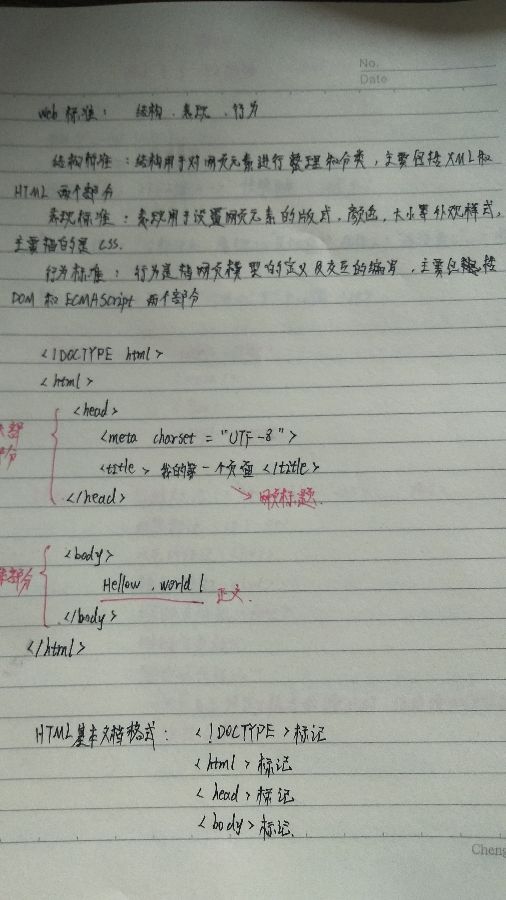 No.
Date
web 标准： 结构、表现、行为
结构标准：结构用于对网页元素进行整理和分类，主要包括XML和
HTML 两个部分
表现标准：表现用于设置网页元素的版式，颜色，大小等外观样式，
主要指的是 CSS.
行为标准：行为是指网页模型的定义及交互的编写，主要包括
DOM 和 ECMAScript 两个部分
<!DOCTYPE html>
<html>
<head>
<meta charset = "UTF-8">
<title> 我的第一个页面 </title>
</head>
网页标题.
部分
<body>
Hellow , world !
正文.
</body>
部分
</html>
HTML 基本文档格式： <!DOCTYPE>标记
<html>标记
<head>标记
<body>标记.
Cheng